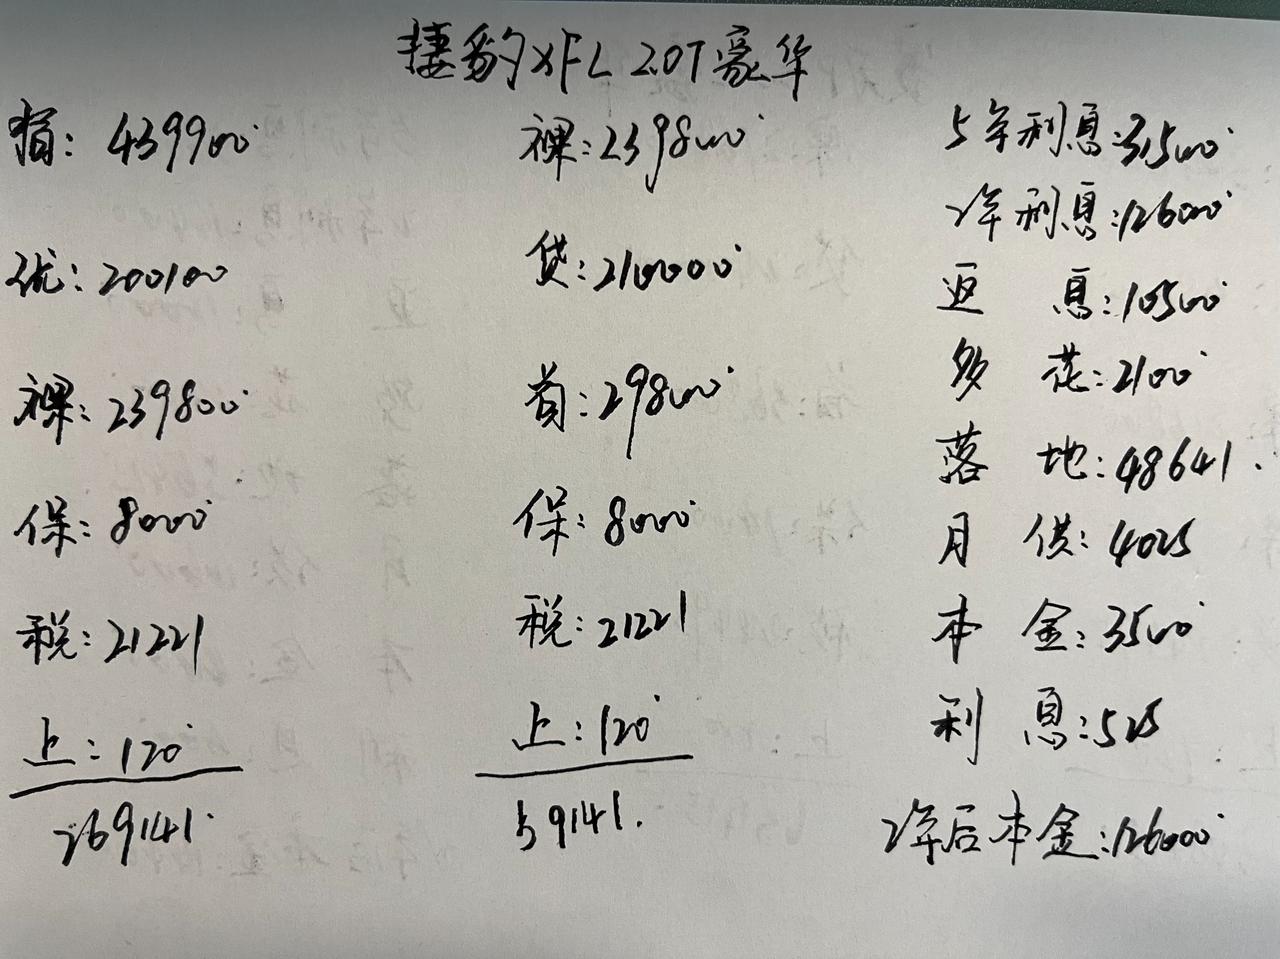 捷豹XFL 2.0T豪华
指: 439900
优: 200100
裸: 239800
保: 8000
税: 21221
上: 120
269141.
裸: 239800
贷: 210000
首: 29800
保: 8000
税: 21221
上: 120
59141.
5年利息: 31500
2年利息: 12600
返 息: 10500
多 花: 2100
落 地: 48641.
月 供: 4025
本 金: 3500
利 息: 525
2年后本金: 126000